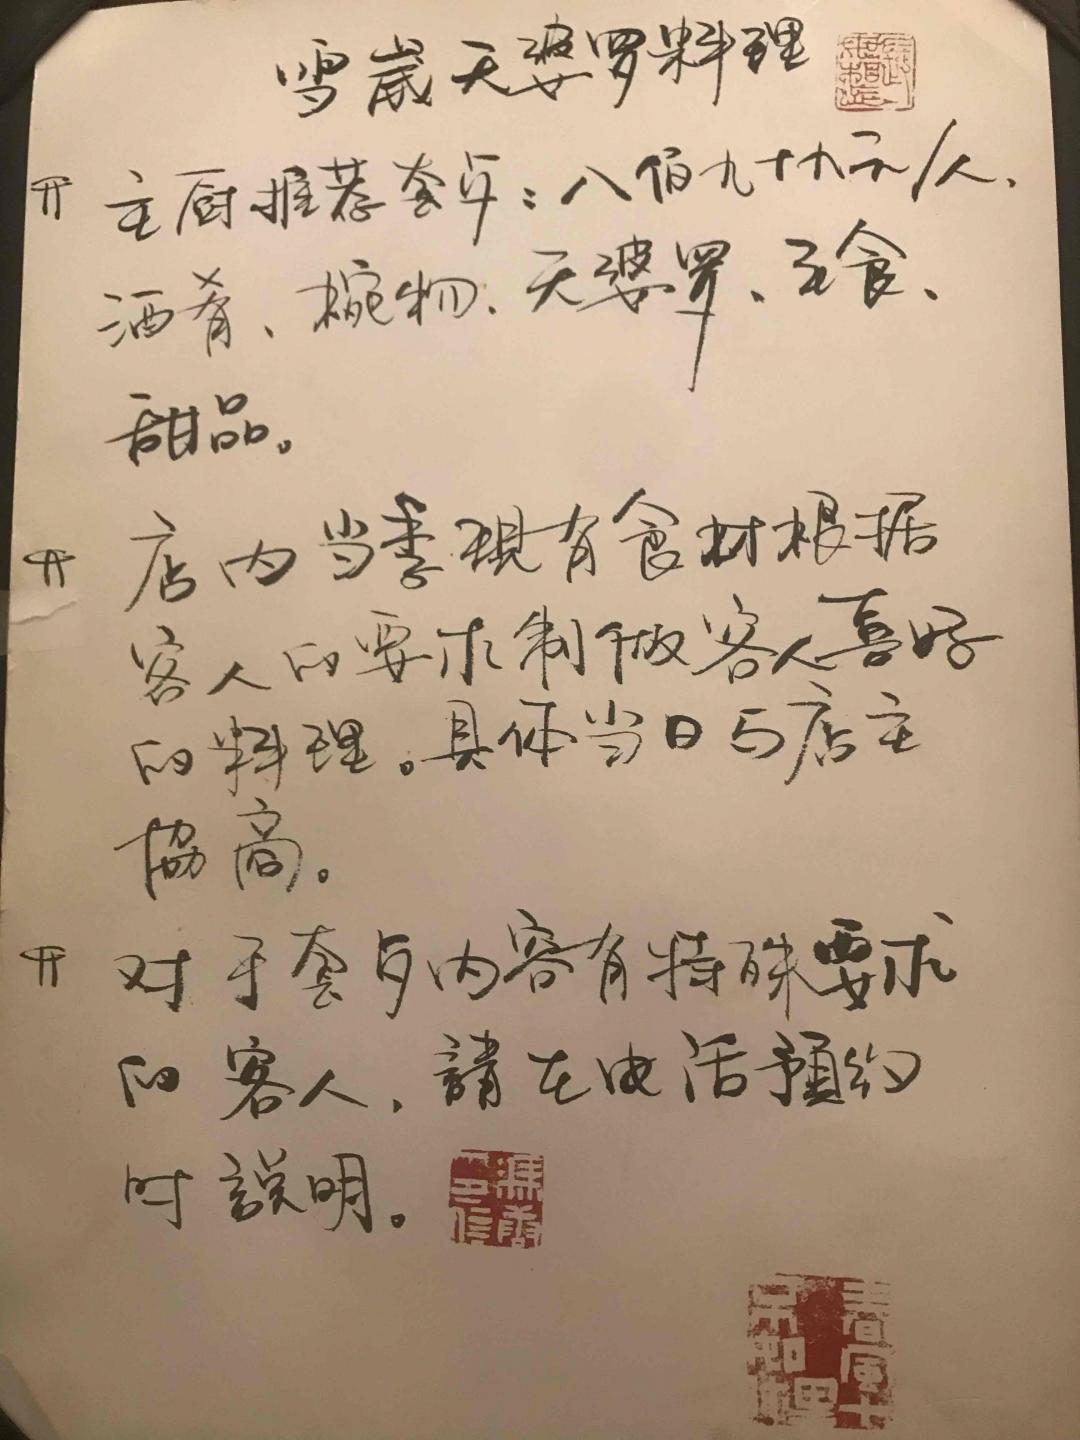 雪崴天婆罗料理
主厨推荐套歺：八佰九十九元/人、
酒肴、椀物、天婆罗、主食、
甜品。
店内当季现有食材根据
客人的要求制做客人喜好
的料理。具体当日与店主
協商。
对于套歺内容有特殊要求
的客人，請在电话預约
时説明。